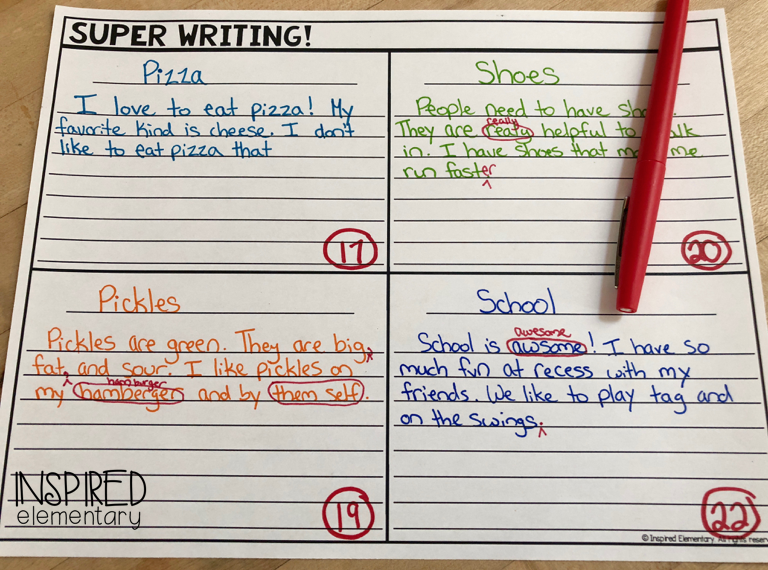 SUPER WRITING!
Pizza
I love to eat pizza! My
favorite kind is cheese. I don't
like to eat pizza that
17
Shoes
People need to have
really
They are realy helpful to
in. I have shoes that me
run faster
^
20
Pickles
Pickles are green. They are big,
fat, and sour. I like pickles on
hamburger
my hamberger and by them self.
19
School
awesome
School is awsome! I have so
much fun at recess with my
friends. We like to play tag and
on the swings.
^
22
INSPIRED
elementary
© Inspired Elementary. All rights